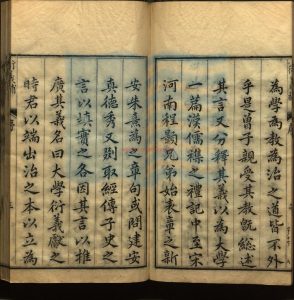 為學為教為治之道皆不外
乎是曾子親受其教既總述
其言又分釋其義以為大學
一篇漢儒襍之禮記中至宋
河南程顥兄弟始表章之新
安朱熹為之章句或問建安
真德秀又剟取經傳子史之
言以填實之各因其言以推
廣其義名曰大學衍義獻之
時君以端出治之本以立為